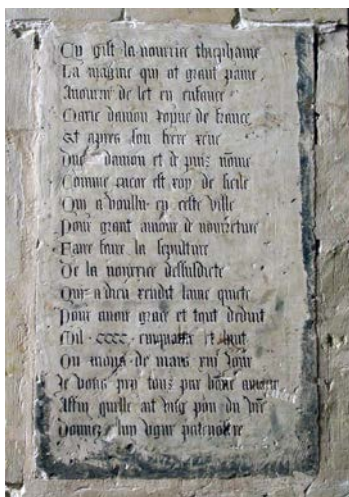 Cy gist la nourrice thiephaine
La magine qui ot grant paine
A nourrir de let en enfance
Marie danjou royne de france
Et apres son frere rene
Duc danjou et de puis nome
Comme encor est roy de sicile
Qui a voullu en ceste ville
Pour grant amour de nourreture
Faire faire la sepulture
De la nourrice dessusdicte
Qui a dieu rendit lame quicte
Pour avoir grace et tout deduit
Mil cccc cinquante et huit
Ou moys de mars xiii jour
Je vous pry tous par bonne amour
Affin quelle ait ung pou du vre
Donnez luy ugne patenostre